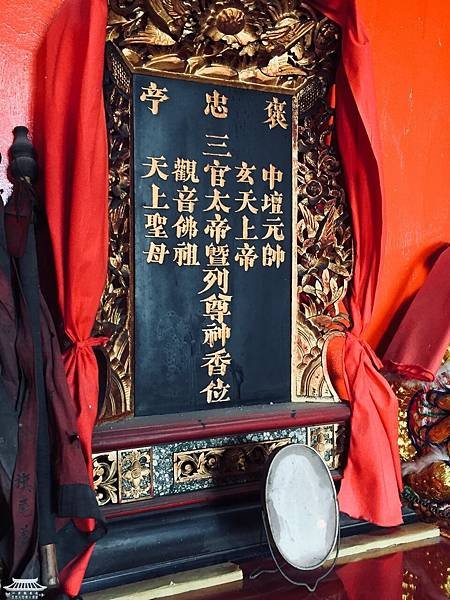 褒忠亭
中壇元帥
玄天上帝
三官太帝暨列尊神香位
觀音佛祖
天上聖母